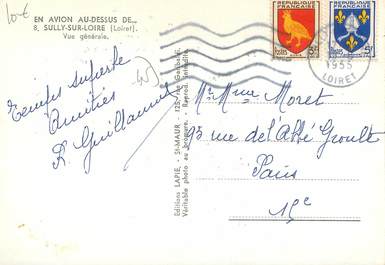 10€
EN AVION AU-DESSUS DE...
8, SULLY-SUR-LOIRE (Loiret).
Vue générale.
Temps superbe
Amitiés
R. Guillaumet
Editions LAPIE, - St-MAUR -
Véritable photo au bromure. - Reprod. interdite
RÉPUBLIQUE FRANÇAISE
POSTES
RÉPUBLIQUE FRANÇAISE
POSTES
5F
1955
LOIRET
Mr Mme Moret
93 rue de l'Abbé Groult
Paris
15e